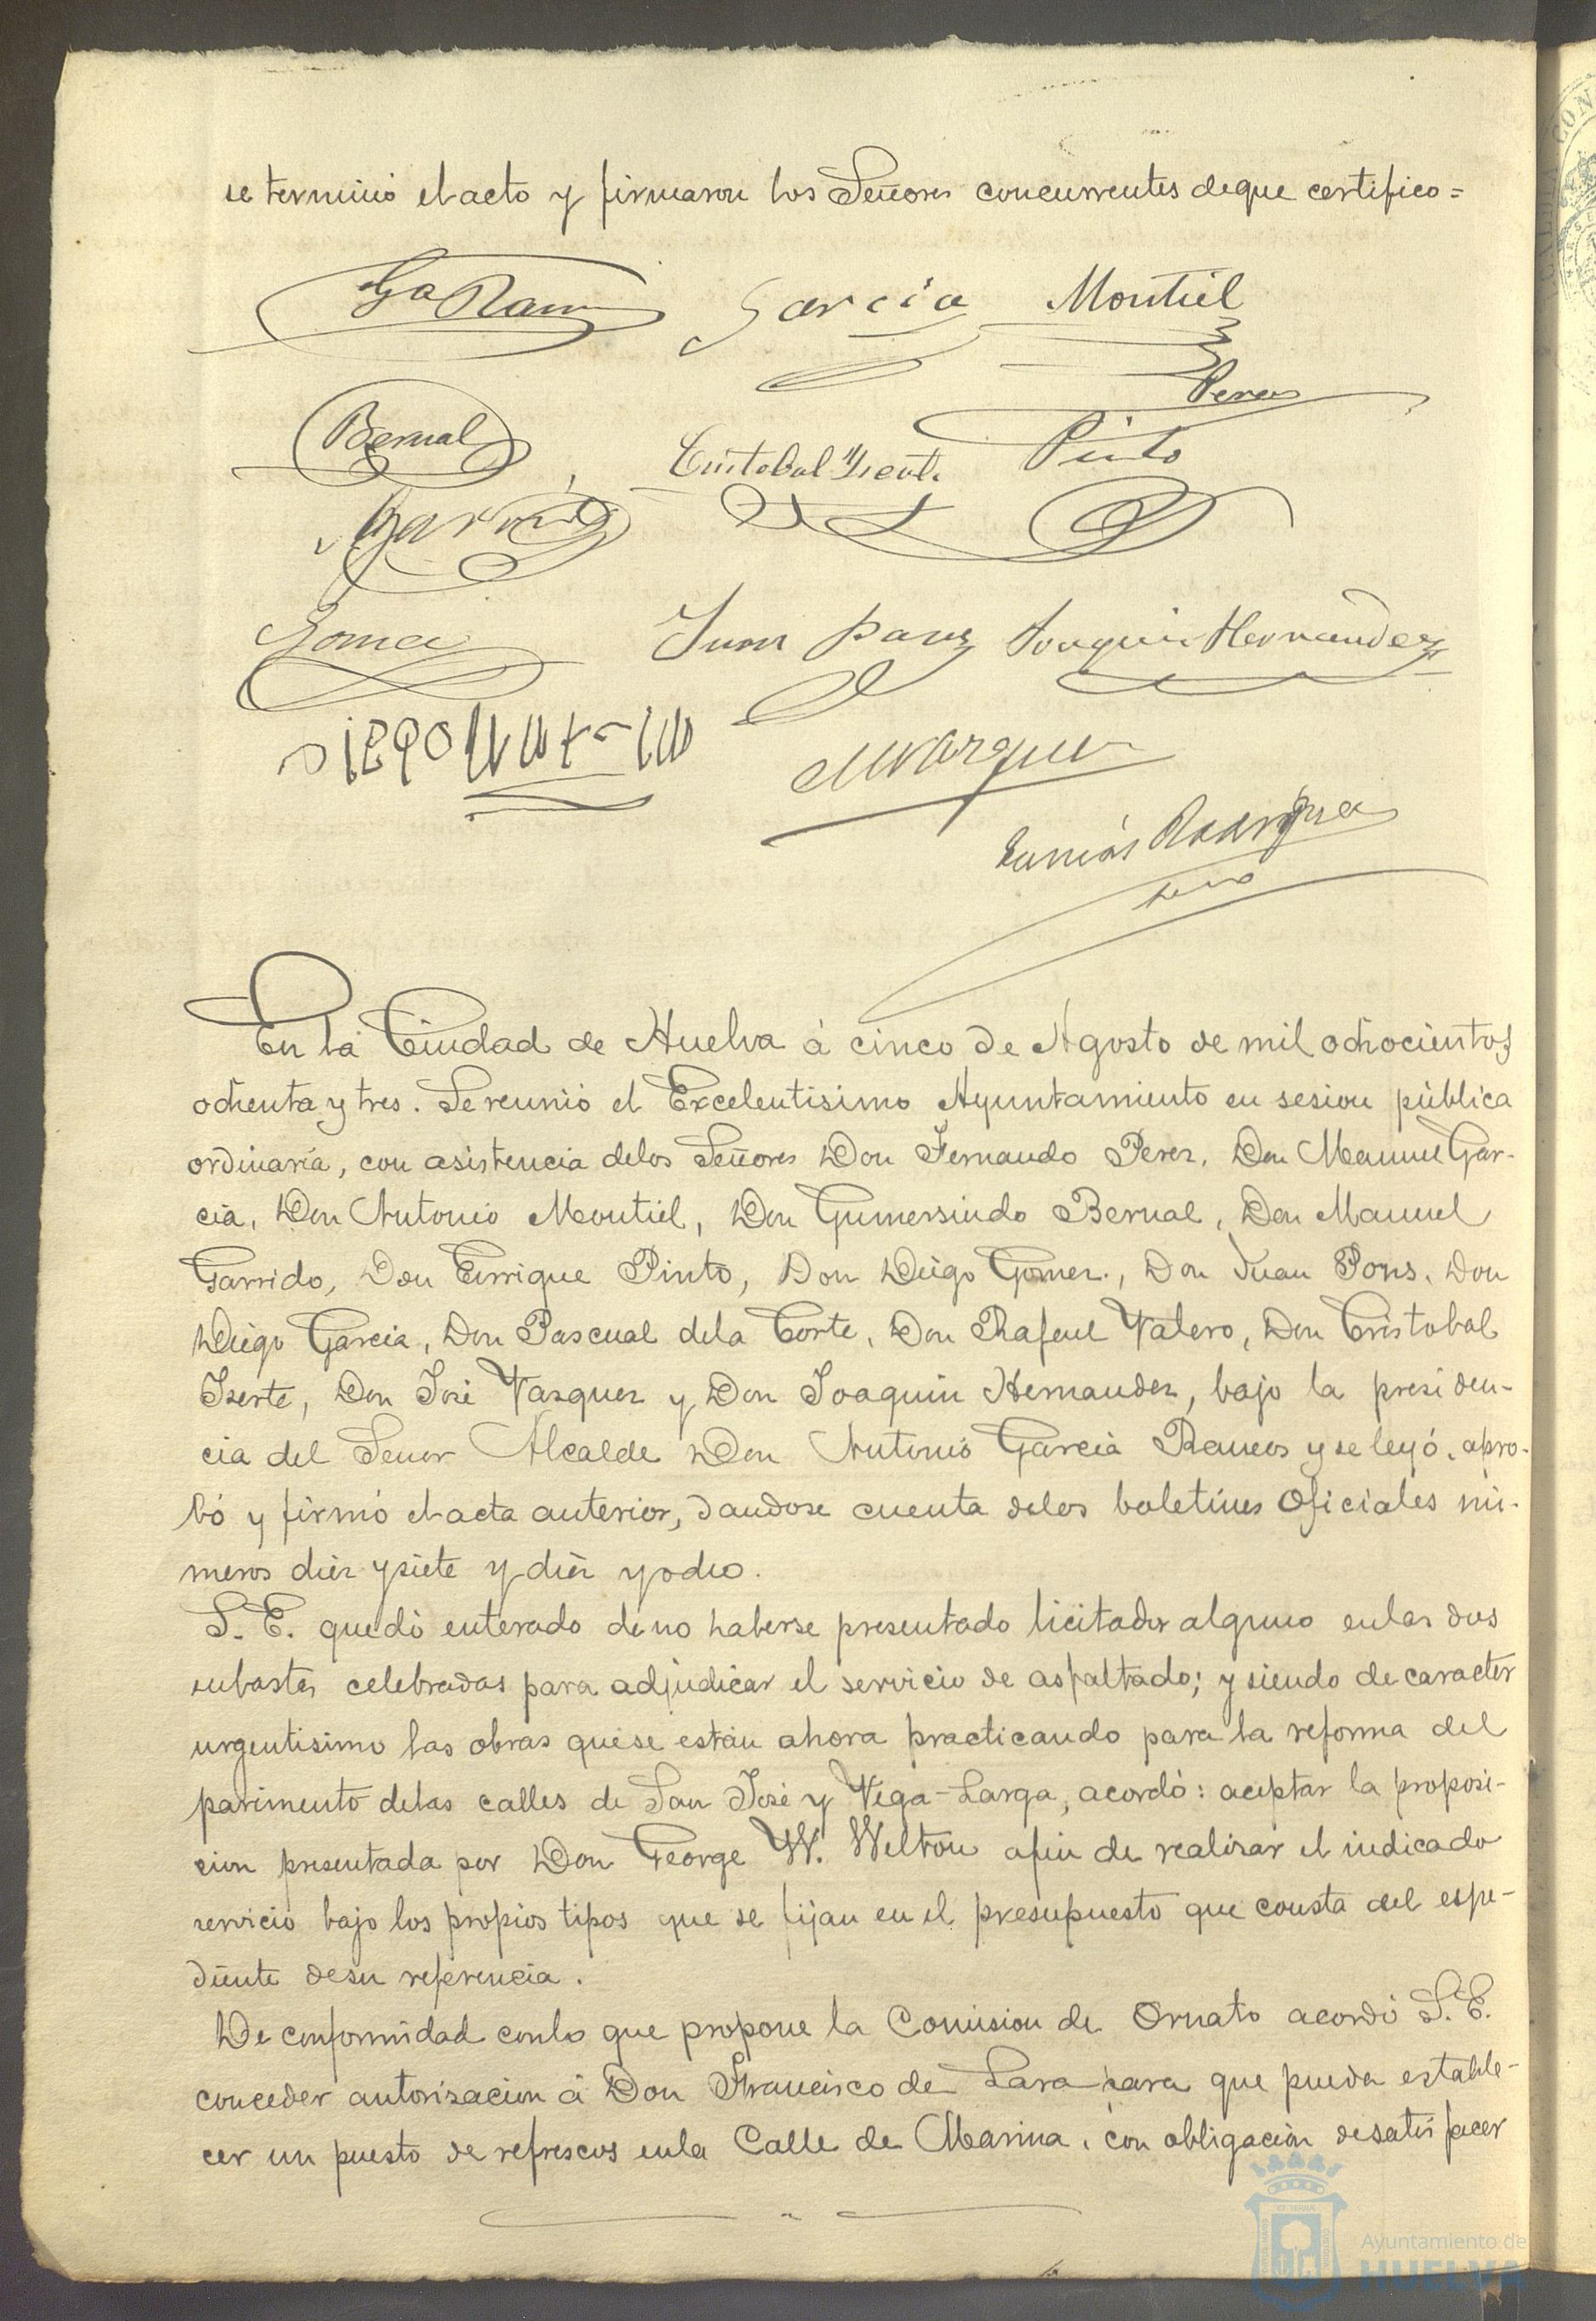 se terminó el acto y firmaron los Señores concurrentes de que certifico=
Ga Ram
Garcia
Montiel
Perez
Bernal
Cristobal Yserte
Pinto
Garrido
Gomez
Juan Pons
Joaquin Hernandez
Vazquez
Tomás
En la Ciudad de Huelva á cinco de Agosto de mil ochocientos
ochenta y tres. Se reunió el Excelentisimo Ayuntamiento en sesion pública
ordinaria, con asistencia delos Señores Don Fernando Perez, Don Manuel Gar-
cia, Don Antonio Montiel, Don Gumersindo Bernal, Don Manuel
Garrido, Don Enrique Pinto, Don Diego Gomez, Don Juan Pons, Don
Diego Garcia, Don Pascual dela Corte, Don Rafael Valero, Don Cristobal
Iserte, Don José Vazquez y Don Joaquin Hernandez, bajo la presiden-
cia del Señor Alcalde Don Antonio Garcia Ramos y se leyó, apro-
bó y firmó el acta anterior, dandose cuenta delos boletines Oficiales nú-
meros diez y siete y diez y ocho.
S. E. quedó enterado de no haberse presentado licitador alguno en las dos
subastas celebradas para adjudicar el servicio de asfaltado; y siendo de caracter
urgentisimo las obras que se están ahora practicando para la reforma del
pavimento delas calles de San José y Vega-Larga, acordó: aceptar la proposi-
cion presentada por Don George W. Welton afin de realizar el indicado
servicio bajo los propios tipos que se fijan en el presupuesto que consta del espe-
diente desu referencia.
De conformidad conlo que propone la Comision de Ornato acordó S. E.
conceder autorizacion á Don Francisco de Lara para que pueda estable-
cer un puesto de refrescos enla Calle de Marina, con obligación desatisfacer
Ayuntamiento de
HUELVA